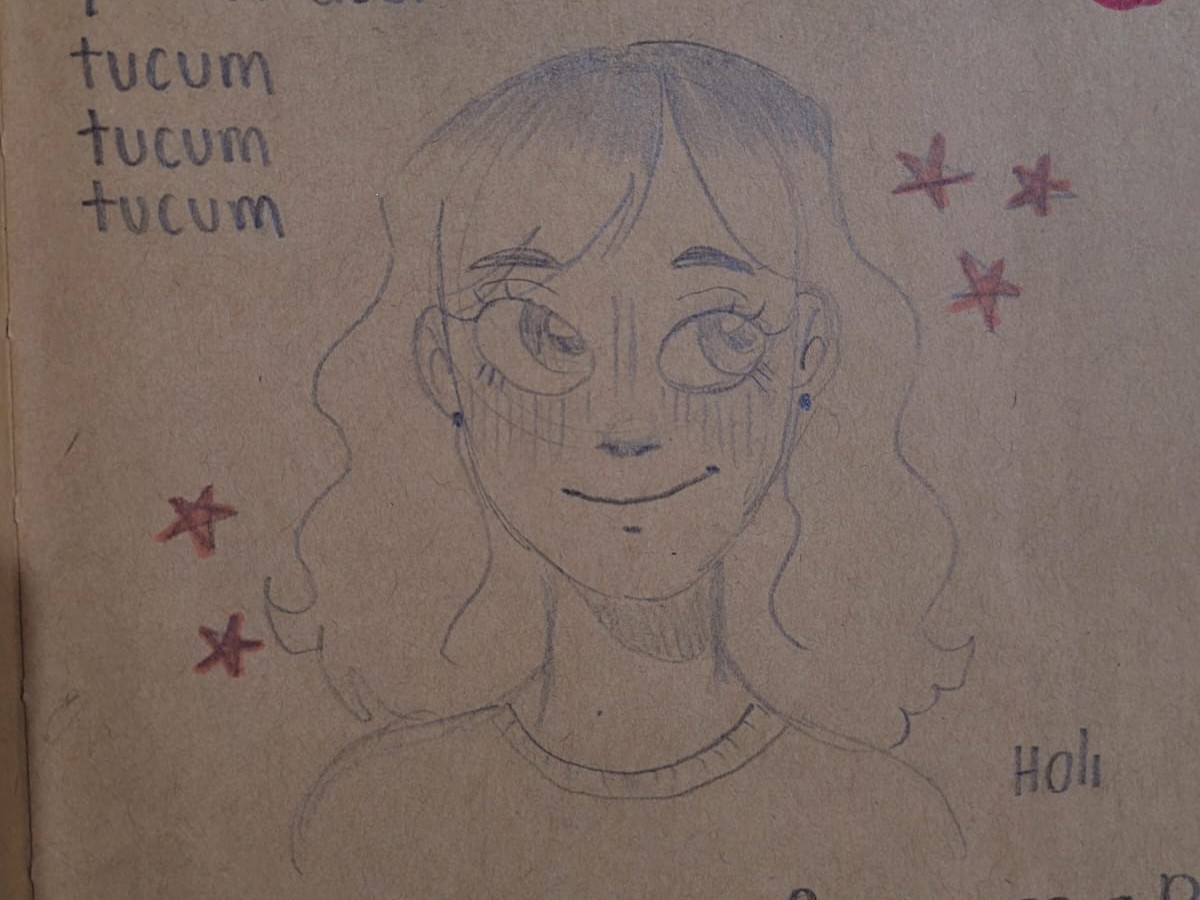 tucum
tucum
tucum
Holi